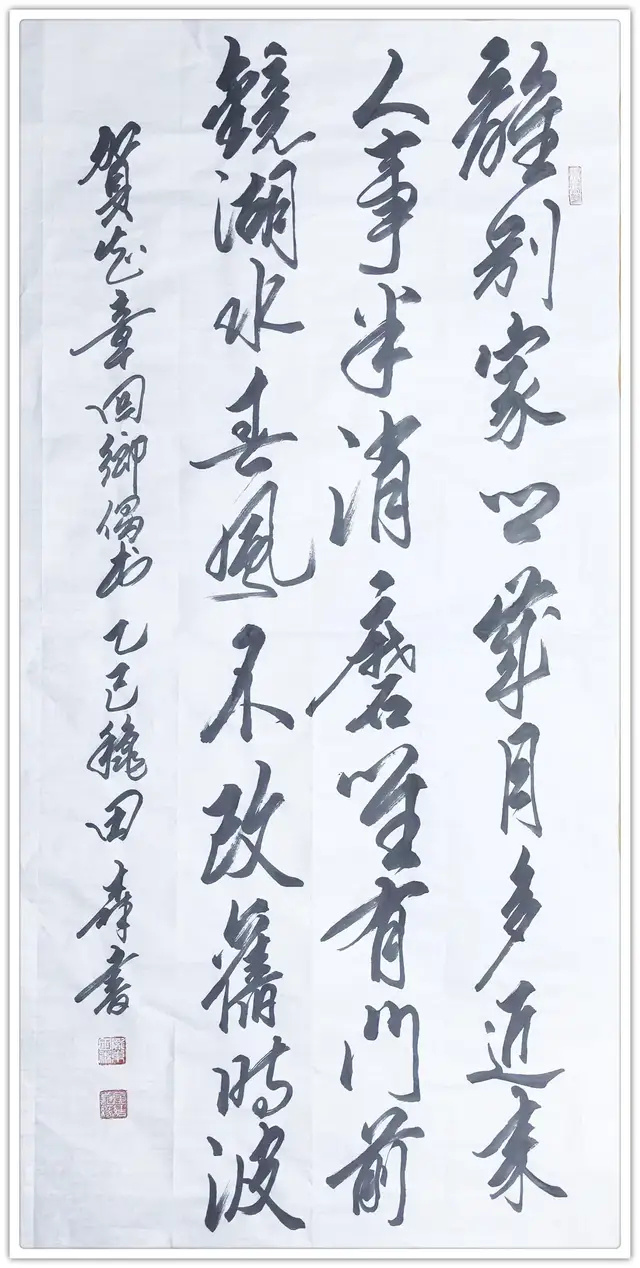 離別家鄉歲月多近来
人事半消磨唯有門前
鏡湖水春風不改舊時波
賀知章回鄉偶書 乙巳穐田 書